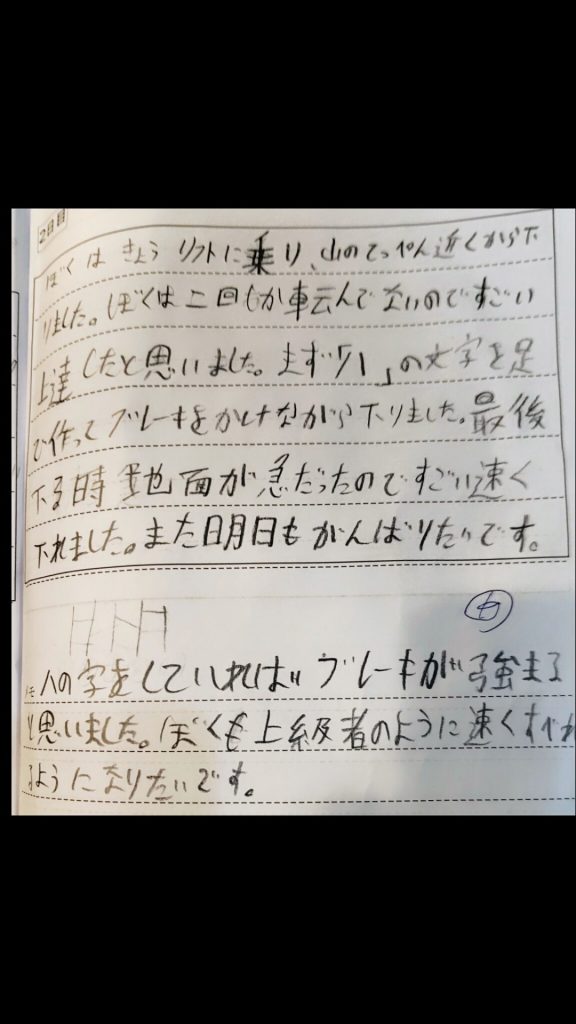 2日目
ぼくはきょうリフトに乗り、山のてっぺん近くから下
りました。ぼくは二回しか転んでないのですごい
上達したと思いました。まず「ハ」の文字を足
で作ってブレーキをかけながら下りました。最後
下る時地面が急だったのですごい速く
下れました。また明日もがんばりたいです。
メモ ハの字をしていればブレーキが強まる
と思いました。ぼくも上級者のように速くすべれ
るようになりたいです。